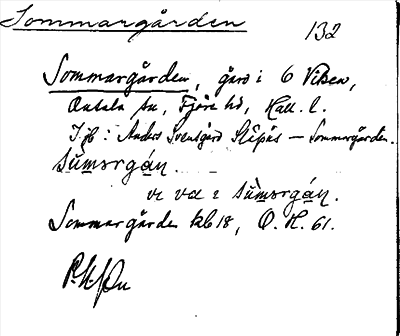 Sommargården
132
Sommargården, gård i 6 Viken,
Onsala sn, Fjäre hd, Hall. l.
Jfr: Anders Svensgård Släpås — Sommargården.
sùmsrgán.
vi va i sùmsrgán.
Sommargården kb 18, O. H. 61.